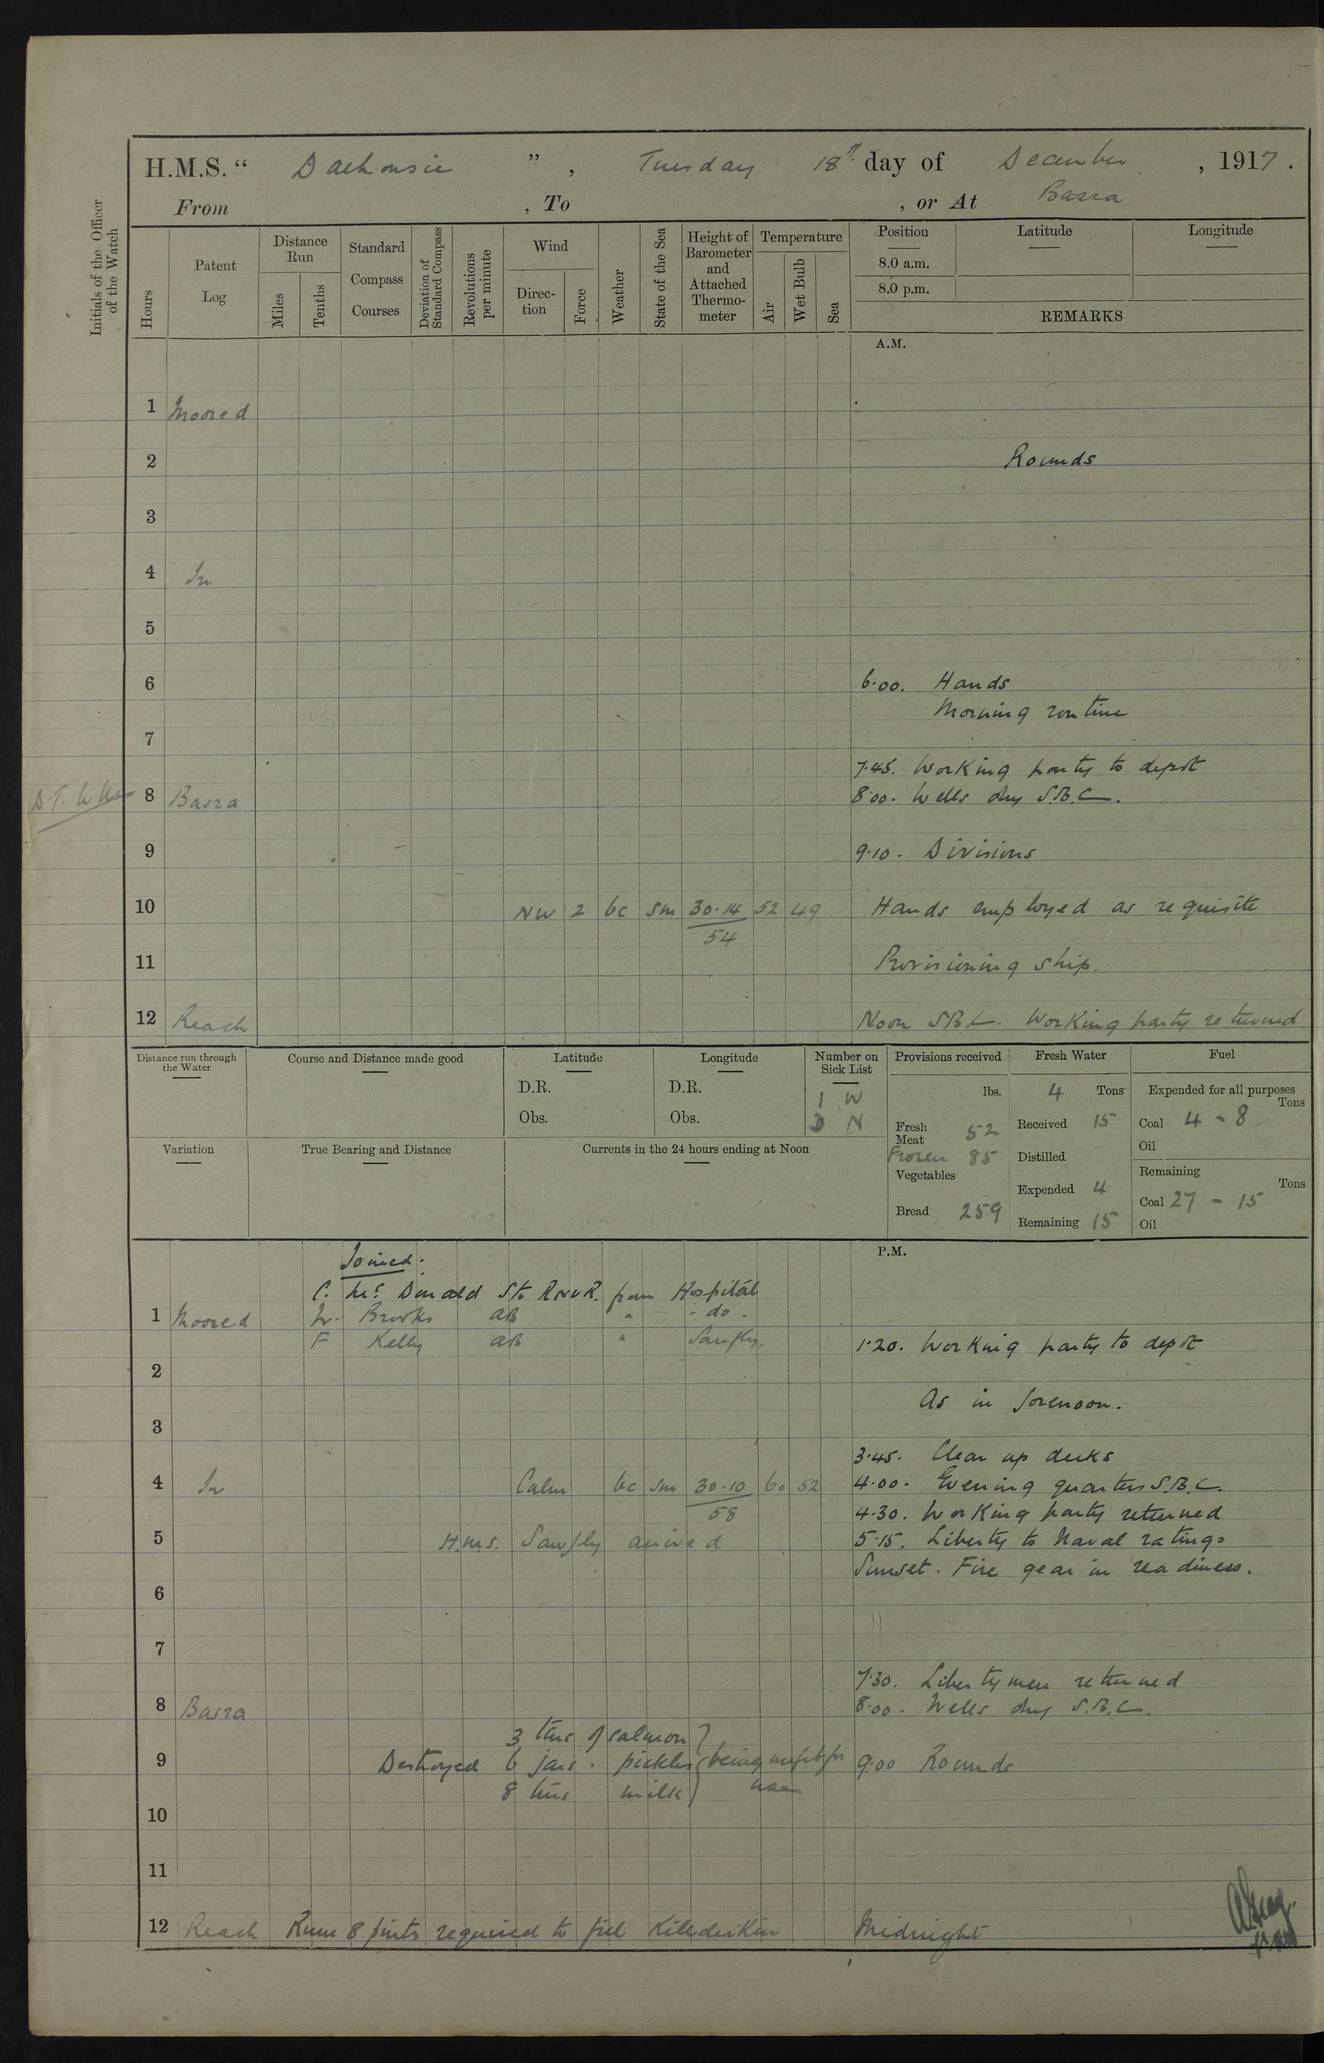 H.M.S. " Dalhousie ", Tuesday 18th day of December, 1917.
From , To , or At Basra
Initials of the Officer of the Watch
Hours
Patent Log
Distance Run
Miles
Tenths
Standard Compass Courses
Deviation of Standard Compass
Revolutions per minute
Wind
Direction
Force
Weather
State of the Sea
Height of Barometer and Attached Thermometer
Temperature
Air
Wet Bulb
Sea
Position
8.0 a.m.
8.0 p.m.
Latitude
Longitude
REMARKS
A.M.
1 Moored
2 Rounds
3
4 In
5
6 6.00. Hands
Morning routine
7
7.45. Working party to depot
8 Basra 8.00. Wells dry S.B.C.
9 9.10. Divisions
10 NW 2 bc sm 30.14 52 49 Hands employed as requisite
54
11 Provisioning ship.
12 Reach Noon S.B.C. Working party returned
Distance run through the Water
Course and Distance made good
Latitude
D.R.
Obs.
Longitude
D.R.
Obs.
Number on Sick List
1 W
N
Provisions received
lbs.
Fresh Meat 52
Frozen 85
Vegetables
Bread 259
Fresh Water
4 Tons
Received 15
Distilled
Expended 4
Remaining 15
Fuel
Expended for all purposes
Tons
Coal 4 - 8
Oil
Remaining
Tons
Coal 27 - 15
Oil
Variation
True Bearing and Distance
Currents in the 24 hours ending at Noon
P.M.
Joined.
C. McDonald Sto R.N.V.R. from Hospital
1 Moored Brooks AB " - do -
F Kelly AB " Sawfly.
1.20. Working party to depot
2
As in forenoon.
3
3.45. Clear up decks
4 In Calm bc sm 30.10 60 52 4.00. Evening quarters S.B.C.
58
4.30. Working party returned
5 H.M.S. Sawfly arrived 5.15. Liberty to Naval ratings
Sunset. Fire gear in readiness.
6
7
7.30. Libertymen returned
8 Basra 8.00. Wells dry S.B.C.
3 tins of salmon
9 Destroyed 6 jars . pickles being unfit for 9.00 Rounds
8 tins milk use
10
11
12 Reach Rum 8 pints required to fill Kilderkin Midnight